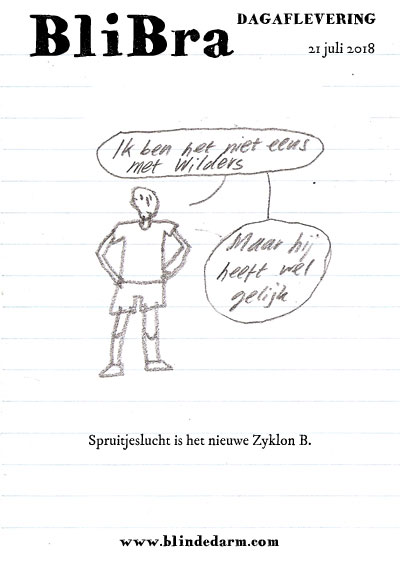 BliBra
DAGAFLEVERING
21 juli 2018
Ik ben het niet eens
met Wilders
Maar hij
heeft wel
gelijk
Spruitjeslucht is het nieuwe Zyklon B.
www.blindedarm.com